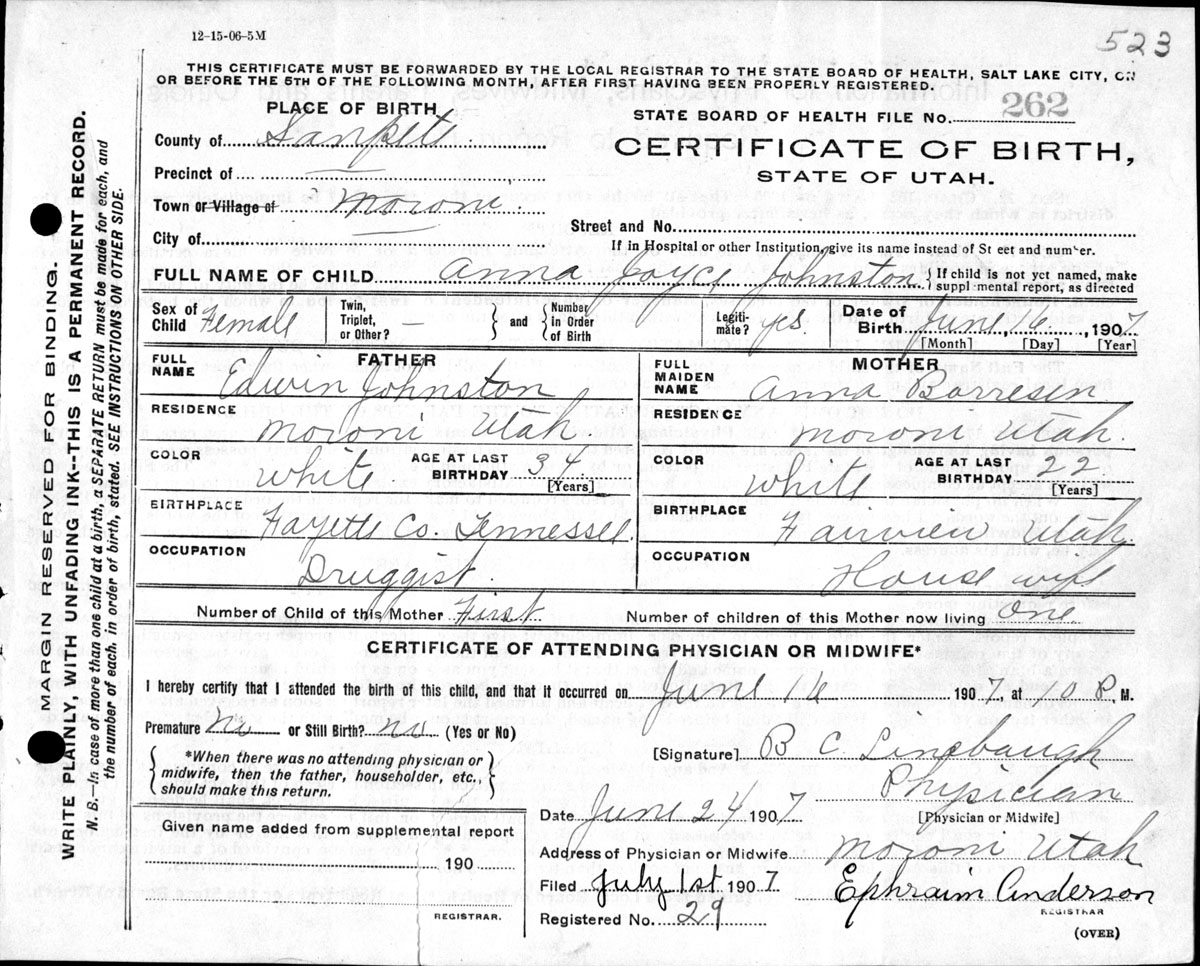 12-15-06-5M
523
THIS CERTIFICATE MUST BE FORWARDED BY THE LOCAL REGISTRAR TO THE STATE BOARD OF HEALTH, SALT LAKE CITY, ON
OR BEFORE THE 5TH OF THE FOLLOWING MONTH, AFTER FIRST HAVING BEEN PROPERLY REGISTERED.
PLACE OF BIRTH
County of Sanpete
Precinct of
Town or Village of Moroni
City of
STATE BOARD OF HEALTH FILE No. 262
CERTIFICATE OF BIRTH,
STATE OF UTAH.
Street and No.
If in Hospital or other Institution, give its name instead of St eet and number.
FULL NAME OF CHILD Anna Joyce Johnston { If child is not yet named, make
suppl mental report, as directed
Sex of Child Female
Twin, Triplet, or Other? — } and { Number in Order of Birth
Legiti-mate? yes
Date of Birth June 16 1907
[Month] [Day] [Year]
FATHER
FULL NAME Edwin Johnston
RESIDENCE Moroni Utah
COLOR White AGE AT LAST BIRTHDAY 34
[Years]
BIRTHPLACE Fayette Co. Tennessee
OCCUPATION Druggist
MOTHER
FULL MAIDEN NAME Anna Borresen
RESIDENCE Moroni Utah.
COLOR White AGE AT LAST BIRTHDAY 22
[Years]
BIRTHPLACE Fairview Utah
OCCUPATION House wife
Number of Child of this Mother First Number of children of this Mother now living One
CERTIFICATE OF ATTENDING PHYSICIAN OR MIDWIFE*
I hereby certify that I attended the birth of this child, and that it occurred on June 16 1907, at 10 P. M.
Premature No or Still Birth? no (Yes or No)
{ *When there was no attending physician or
midwife, then the father, householder, etc.,
should make this return. }
[Signature] B C Linebaugh
Physician
[Physician or Midwife]
Date June 24 1907
Address of Physician or Midwife Moroni Utah
Given name added from supplemental report
190
REGISTRAR.
Filed July 1st 1907 Ephraim Anderson
REGISTRAR
Registered No. 29
(OVER)
MARGIN RESERVED FOR BINDING.
WRITE PLAINLY, WITH UNFADING INK--THIS IS A PERMANENT RECORD.
N. B.--In case of more than one child at a birth, a SEPARATE RETURN must be made for each, and
the number of each, in order of birth, stated. SEE INSTRUCTIONS ON OTHER SIDE.